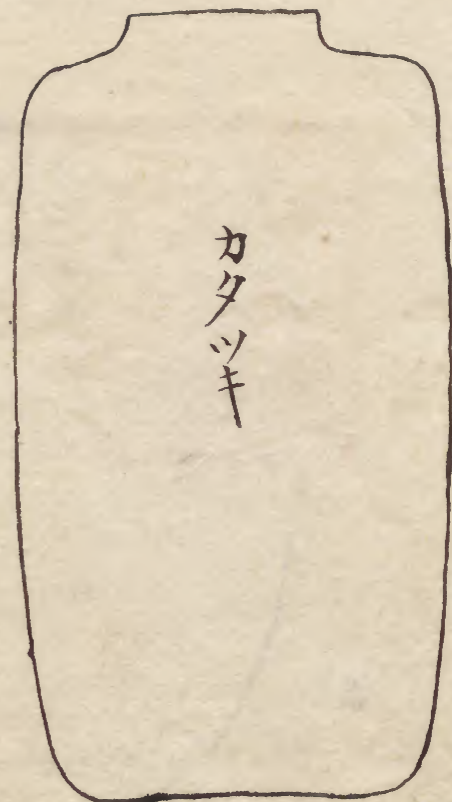 カタツキ